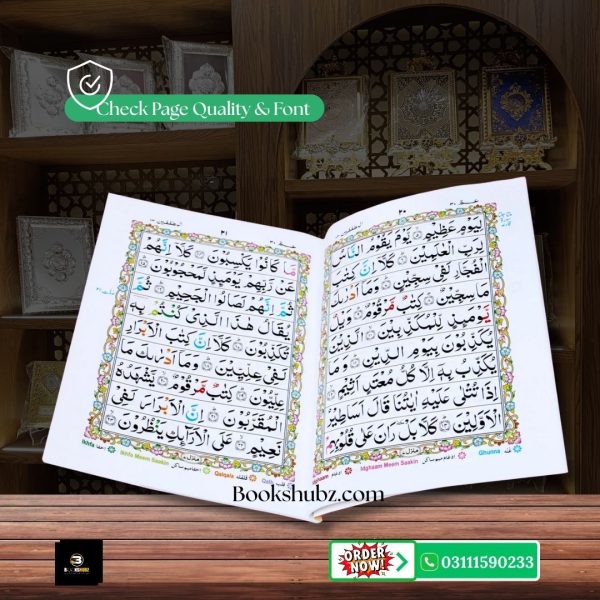 Check Page Quality & Font
۴۰
يَوْمٍ عَظِيْمٍ ۝ يَّوْمَ يَقُوْمُ النَّاسُ
لِرَبِّ الْعٰلَمِيْنَ ۝ كَلَّاۤ اِنَّ كِتٰبَ
الْفُجَّارِ لَفِيْ سِجِّيْنٍ ۝ وَمَاۤ اَدْرٰىكَ
مَا سِجِّيْنٌ ۝ كِتٰبٌ مَّرْقُوْمٌ ۝ وَيْلٌ
يَّوْمَئِذٍ لِّلْمُكَذِّبِيْنَ ۝ الَّذِيْنَ
يُكَذِّبُوْنَ بِيَوْمِ الدِّيْنِ ۝ وَمَا
يُكَذِّبُ بِهٖۤ اِلَّا كُلُّ مُعْتَدٍ اَثِيْمٍ ۝
اِذَا تُتْلٰى عَلَيْهِ اٰيٰتُنَا قَالَ اَسَاطِيْرُ
الْاَوَّلِيْنَ ۝ كَلَّا بَلْ رَانَ عَلٰى قُلُوْبِهِمْ
Idghaam Meem Saakin
Ghunna غنه
۴۱
مَّا كَانُوْا يَكْسِبُوْنَ ۝ كَلَّاۤ اِنَّهُمْ
عَنْ رَّبِّهِمْ يَوْمَئِذٍ لَّمَحْجُوْبُوْنَ ۝
ثُمَّ اِنَّهُمْ لَصَالُوا الْجَحِيْمِ ۝ ثُمَّ
يُقَالُ هٰذَا الَّذِيْ كُنْتُمْ بِهٖ
تُكَذِّبُوْنَ ۝ كَلَّاۤ اِنَّ كِتٰبَ الْاَبْرَارِ
لَفِيْ عِلِّيِّيْنَ ۝ وَمَاۤ اَدْرٰىكَ مَا
عِلِّيُّوْنَ ۝ كِتٰبٌ مَّرْقُوْمٌ ۝ يَّشْهَدُهُ
الْمُقَرَّبُوْنَ ۝ اِنَّ الْاَبْرَارَ لَفِيْ
نَعِيْمٍ ۝ عَلَى الْاَرَآئِكِ يَنْظُرُوْنَ ۝
Ikhfa
Ikhfa Meem Saakin
Qalqala قلقله
Bookshubz.com
BOOKSHUBZ
ORDER NOW!
03111590233